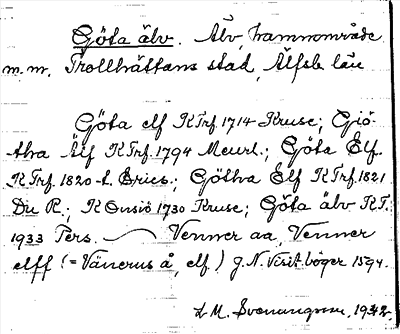 Göta älv. Älv, hamnområde
m.m. Trollhättans stad, Älfsb län
Göta elf KTrf. 1714 Kruse; Giö-
tha Älf KTrf. 1794 Meurl.; Göta Elf
KTrf. 1820-t. Erics.; Götha Elf KTrf. 1821
Du R.; K Onsiö 1730 Kruse; Göta älv KT.
1933 Pers. Venner aa, Venner
elff (= Vänerns å, elf) J. N. Visit.böger 1594.
M. Svenungsson, 1942.